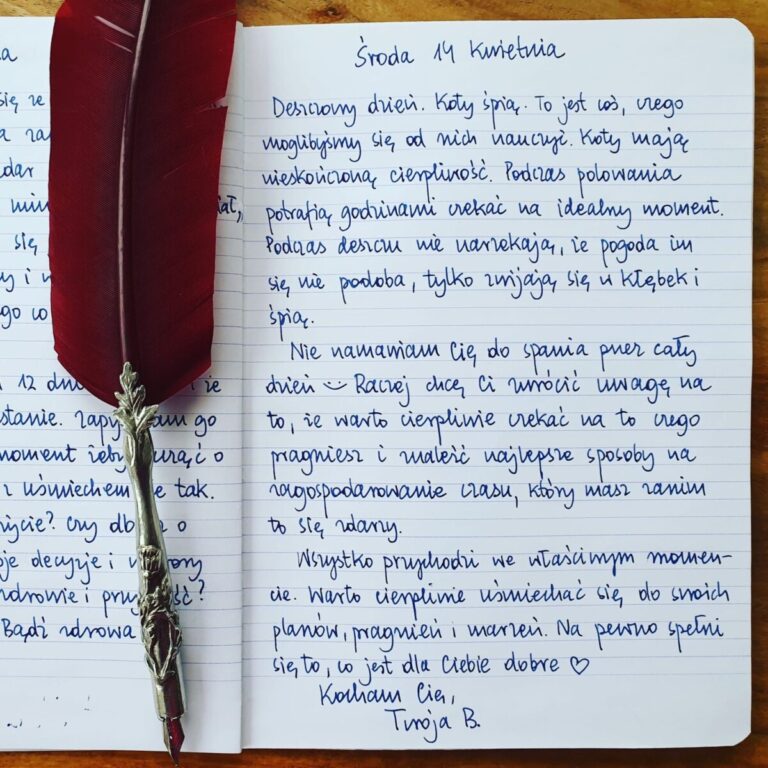 a
się ze
a
dar
min
iał,
się
y i
go co
12 dn
i że
stanie. zapy
am go
moment żeby
o
z uśmiechem
e tak.
życie? Czy db
z o
je decyzje i
ory
zdrowie i prz
ść?
Bądź zdrowa
Środa 14 Kwietnia
Deszczowy dzień. Koty śpią. To jest coś, czego
moglibyśmy się od nich nauczyć. Koty mają
nieskończoną cierpliwość. Podczas polowania
potrafią godzinami czekać na idealny moment.
Podczas deszczu nie narzekają, że pogoda im
się nie podoba, tylko zwijają się w kłębek i
śpią.
Nie namawiam Cię do spania przez cały
dzień Raczej chcę Ci zwrócić uwagę na
to, że warto cierpliwie czekać na to czego
pragniesz i znaleźć najlepsze sposoby na
zagospodarowanie czasu, który masz zanim
to się zdarzy.
Wszystko przychodzi we właściwym momen-
cie. Warto cierpliwie uśmiechać się do swoich
planów, pragnień i marzeń. Na pewno spełni
się to, co jest dla Ciebie dobre ♡
Kocham Cię,
Twója B.